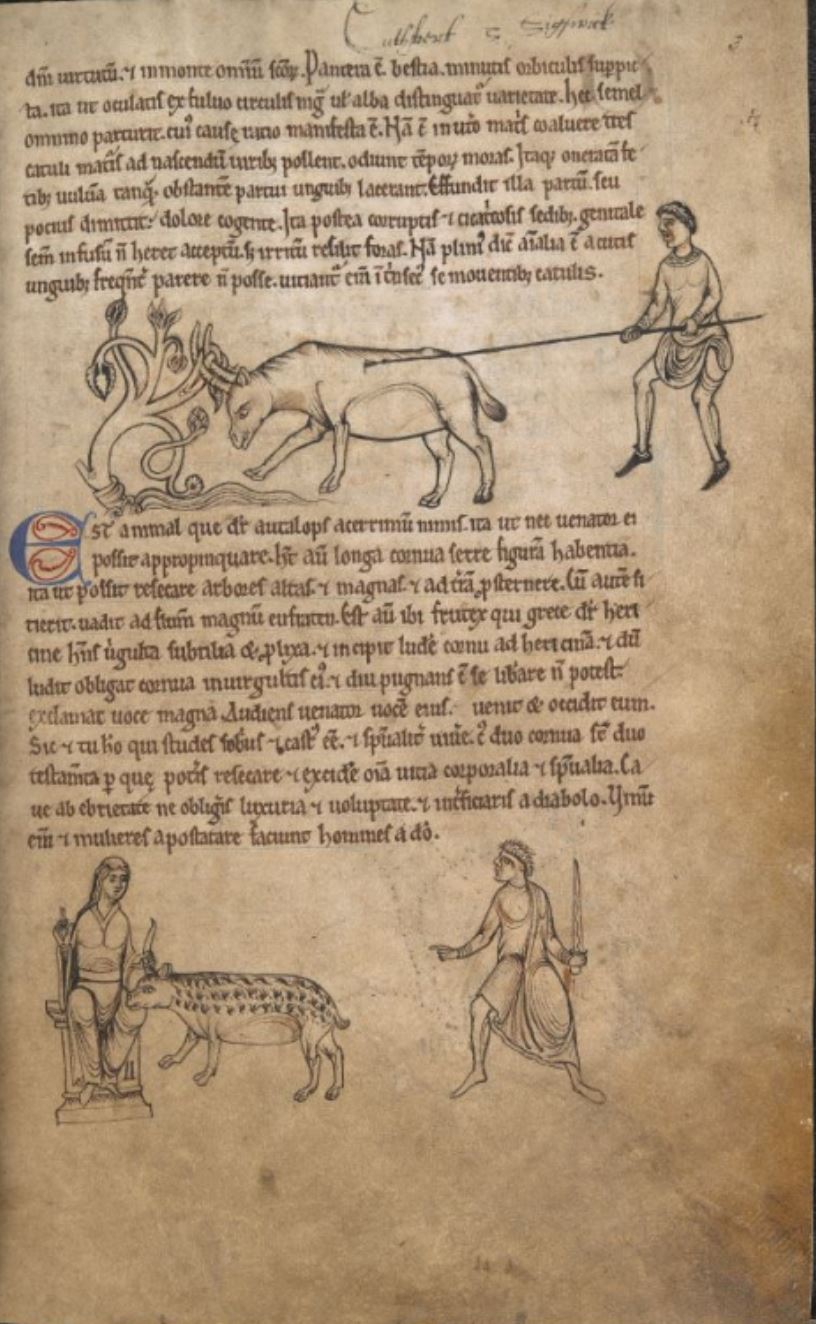 Cuthbert = Sigswick
3
4
dm̄ uirtutū. ⁊ in monte omniū sc̄oꝝ. Pantera ē bestia. minutis orbiculis suppic
ta. ita ut oculatis ex fuluo circulis nig̃ ul' alba distinguat᷑ uarietate. hec semel
omnino parturit. cui᷒ cause ratio manifesta ē. Nā ē in utō mat̃s coaluere tres
catuli mat̃s ad nascendū uirib; pollent. odiunt tēpoꝝ moras. Itaq; oneratā fe
tib; uuluā tanq̃; obstantē partui unguib; lacerant. Effundit illa partū. seu
potius dimittit: dolore cogente. Ita postea corruptis ⁊ cicat̃cosis sedib;. genitale
sem̄ infusū n̄ heret acceptū. s; irritū resilit foras. Nā plini᷒ dic̄ aīalia c̄ acutis
unguib; freqn̄t̃ parere n̄ posse. uitiant᷑ eīm īt̃nsec᷒ se mouentib; catulis.
Est animal que dr̄ autalops acerrimū nimis. ita ut nec uenator ei
possit appropinquare. h̄t aū longa cornua serre figurā habentia.
ita ut possit resecare arbores altas. ⁊ magnas. ⁊ ad t̃rā ꝓsternere. Cū autē si
tierit. uadit ad flum̄ magnū eufraten. Est aū ibi frutex qui grece dr̄ heri
cine hn̄s uirgulta subtilia & ꝓlixa. ⁊ incipit lude᷑ cornu ad hericinā. ⁊ dū
ludit obligat cornua in uirgultis ei᷒. ⁊ diu pugnans c̄ se lib̃are n̄ potest:
exclamat uoce magna. Audiens uenator uocē eius. uenit & occidit eum.
Sic ⁊ tu hō qui studes sobrius ⁊ cast᷒ eē. ⁊ sp̄ualit̃ uiue᷑. c᷒ duo cornua sc̄ duo
testam̄ta ꝑ que᷒ pot̃is resecare ⁊ excide᷑ oīa uitia corporalia ⁊ sp̄ualia. Ca
ue ab ebrietate ne oblig̃is luxuria ⁊ uoluptate. ⁊ int̃ficiaris a diabolo. Vinū
eīm ⁊ mulieres apostatare faciunt homines a dō.